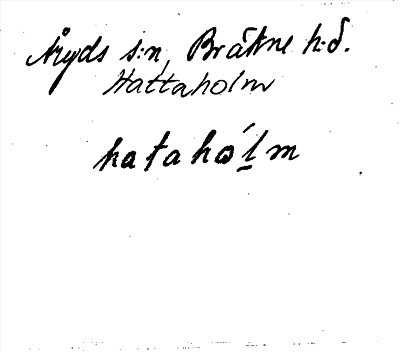 Åryds s:n, Bräkne h:d.
Hattaholm
hataholm